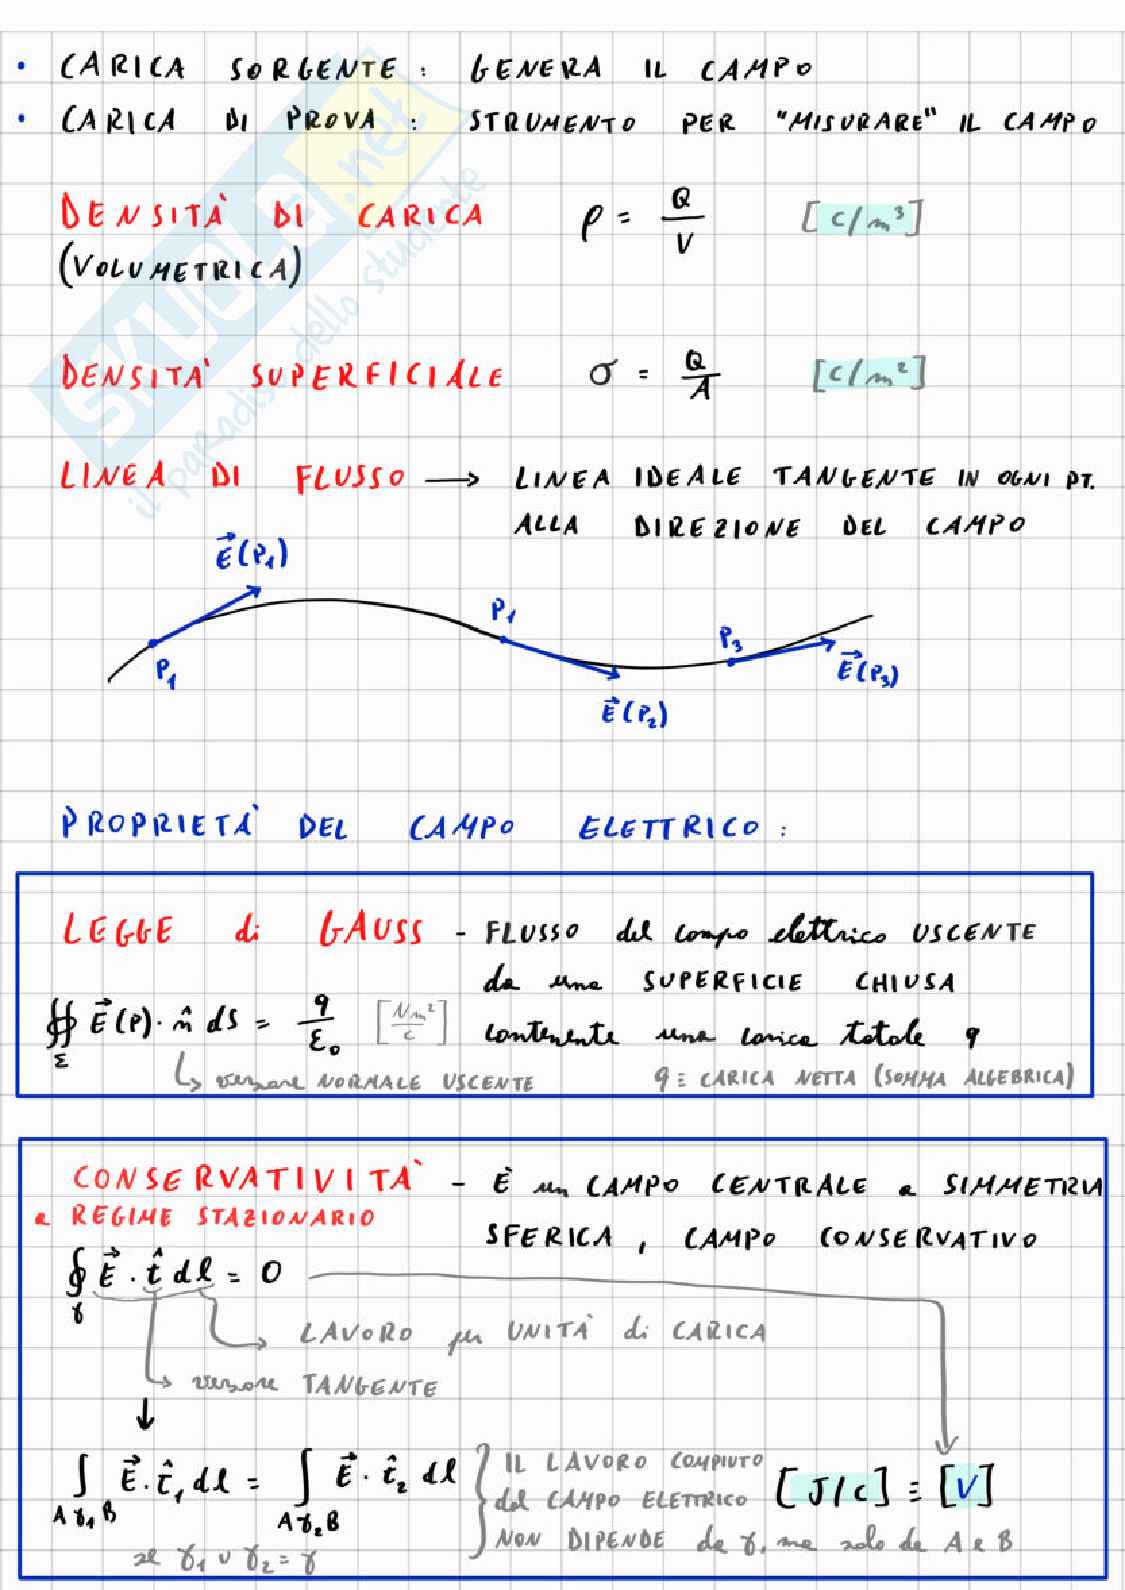 • CARICA SORGENTE : GENERA IL CAMPO
• CARICA DI PROVA : STRUMENTO PER "MISURARE" IL CAMPO
DENSITÀ DI CARICA ρ = Q/V [C/m³]
(VOLUMETRICA)
DENSITA' SUPERFICIALE σ = Q/A [C/m²]
LINEA DI FLUSSO → LINEA IDEALE TANGENTE IN OGNI PT.
ALLA DIREZIONE DEL CAMPO
E⃗(P₁)
P₁
P₁
E⃗(P₂)
P₃
E⃗(P₃)
PROPRIETÀ DEL CAMPO ELETTRICO :
LEGGE di GAUSS - FLUSSO del campo elettrico USCENTE
da una SUPERFICIE CHIUSA
∯_Σ E⃗(P)·n̂ dS = q/ε₀ [Nm²/C] contenente una carica totale q
↳ versore NORMALE USCENTE q ≡ CARICA NETTA (SOMMA ALGEBRICA)
CONSERVATIVITÀ - È un CAMPO CENTRALE a SIMMETRIA
a REGIME STAZIONARIO
SFERICA , CAMPO CONSERVATIVO
∮_γ E⃗ · t̂ dl = 0
→ LAVORO per UNITÀ di CARICA
→ versore TANGENTE
↓
∫_Aγ₁B E⃗·t̂₁ dl = ∫_Aγ₂B E⃗·t̂₂ dl } IL LAVORO COMPIUTO
dal CAMPO ELETTRICO [J/C] ≡ [V]
NON DIPENDE da γ, ma solo da A e B
se γ₁ ∪ γ₂ = γ
SKUOLA.net
il paradiso dello studente